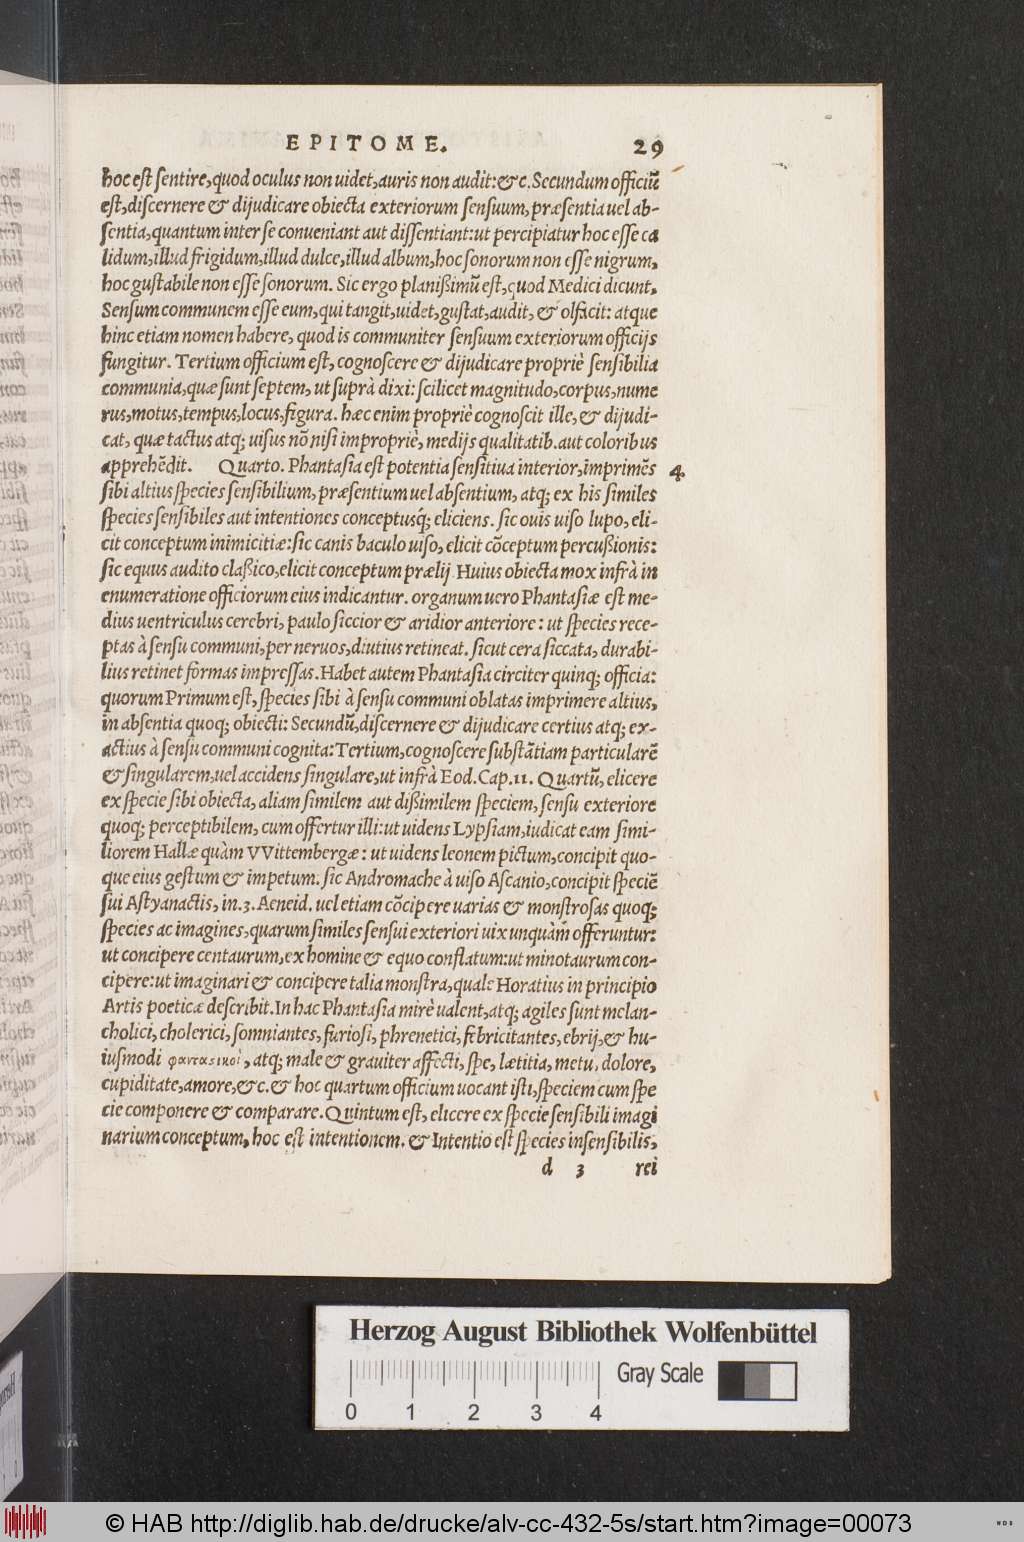 EPITOME. 29
hoc est sentire, quod oculus non uidet, auris non audit: &c. Secundum officiũ
est, discernere & dijudicare obiecta exteriorum sensuum, præsentia uel ab-
sentia, quantum inter se conueniant aut dissentiant: ut percipiatur hoc esse ca
lidum, illud frigidum, illud dulce, illud album, hoc sonorum non esse nigrum,
hoc gustabile non esse sonorum. Sic ergo planißimũ est, quod Medici dicunt,
Sensum communem esse eum, qui tangit, uidet, gustat, audit, & olfacit: atque
hinc etiam nomen habere, quod is communiter sensuum exteriorum officijs
fungitur. Tertium officium est, cognoscere & dijudicare propriè sensibilia
communia, quæ sunt septem, ut suprà dixi: scilicet magnitudo, corpus, nume
rus, motus, tempus, locus, figura. hæc enim propriè cognoscit ille, & dijudi-
cat, quæ tactus atq; uisus nõ nisi impropriè, medijs qualitatib. aut coloribus
apprehẽdit. Quarto. Phantasia est potentia sensitiua interior, imprimẽs 4.
sibi altius species sensibilium, præsentium uel absentium, atq; ex his similes
species sensibiles aut intentiones conceptusq́; eliciens. sic ouis uiso lupo, eli-
cit conceptum inimicitiæ: sic canis baculo uiso, elicit cõceptum percußionis:
sic equus audito claßico, elicit conceptum prælij. Huius obiecta mox infrà in
enumeratione officiorum eius indicantur. organum uero Phantasiæ est me-
dius uentriculus cerebri, paulo siccior & aridior anteriore: ut species rece-
ptas à sensu communi, per neruos, diutius retineat. sicut cera siccata, durabi-
lius retinet formas impressas. Habet autem Phantasia circiter quinq; officia:
quorum Primum est, species sibi à sensu communi oblatas imprimere altius,
in absentia quoq; obiecti: Secundũ, discernere & dijudicare certius atq; ex-
actius à sensu communi cognita: Tertium, cognoscere substãtiam particularẽ
& singularem, uel accidens singulare, ut infrà Eod. Cap. 11. Quartũ, elicere
ex specie sibi obiecta, aliam similem aut dißimilem speciem, sensu exteriore
quoq; perceptibilem, cum offertur illi: ut uidens Lypsiam, iudicat eam simi-
liorem Hallæ quàm VVittembergæ: ut uidens leonem pictum, concipit quo-
que eius gestum & impetum. sic Andromache à uiso Ascanio, concipit speciẽ
sui Astyanactis, in. 3. Aeneid. uel etiam cõcipere uarias & monstrosas quoq;
species ac imagines, quarum similes sensui exteriori uix unquàm offeruntur:
ut concipere centaurum, ex homine & equo conflatum: ut minotaurum con-
cipere: ut imaginari & concipere talia monstra, quale Horatius in principio
Artis poeticæ describit. In hac Phantasia mirè ualent, atq; agiles sunt melan-
cholici, cholerici, somniantes, furiosi, phrenetici, febricitantes, ebrij, & hu-
iusmodi φαντασικοὶ, atq; male & grauiter affecti, spe, lætitia, metu, dolore,
cupiditate, amore, &c. & hoc quartum officium uocant isti, speciem cum spe
cie componere & comparare. Quintum est, elicere ex specie sensibili imagi
narium conceptum, hoc est intentionem. & Intentio est species insensibilis,
d 3 rei
Herzog August Bibliothek Wolfenbüttel
Gray Scale
0 1 2 3 4
© HAB http://diglib.hab.de/drucke/alv-cc-432-5s/start.htm?image=00073